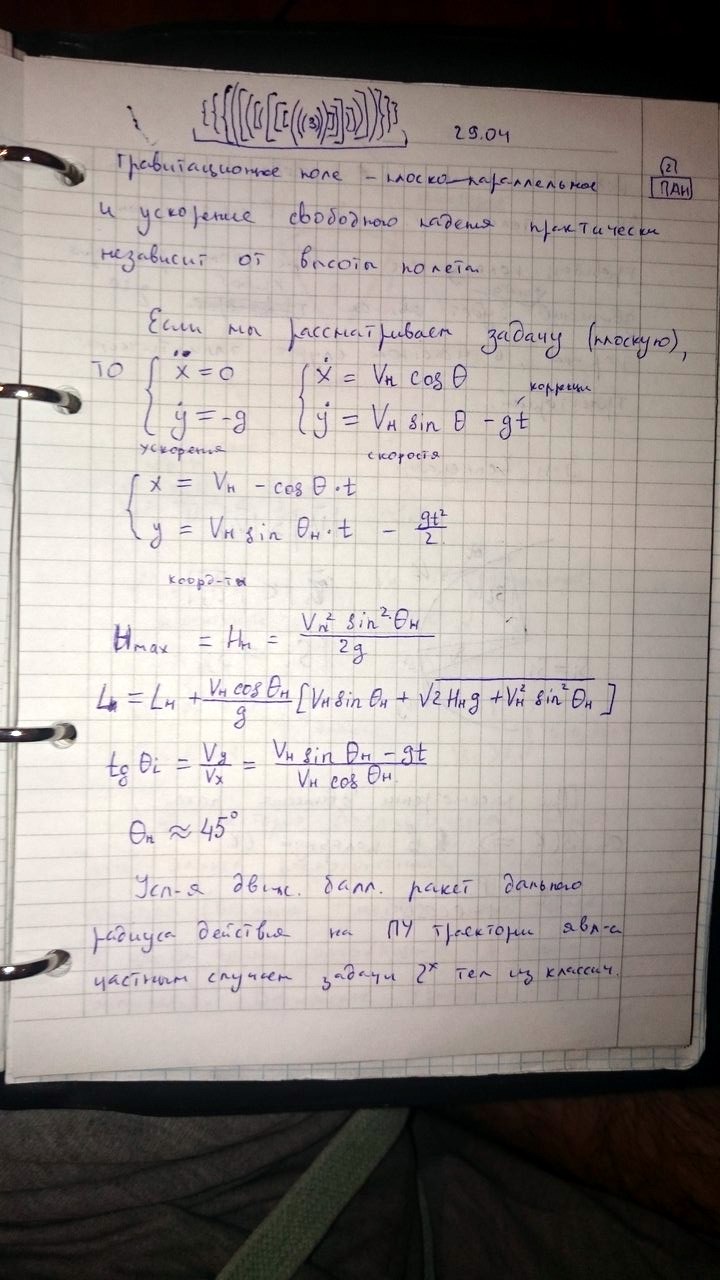 {{{([([([[((3))]])])])}}} 29.04
2
ПАН
Гравитационное поле – плоско-параллельное
и ускорение свободного падения практически
независит от высоты полета
Если мы рассматривает задачу (плоскую),
то { ẍ = 0 { ẋ = Vн cos θ коррекции
{ ẏ = -g { ẏ = Vн sin θ - gt
ускорения скоростя
{ x = Vн - cos θ · t
{ y = Vн sin θн · t - gt²/2
коорд-ты
Hmax = Hн = Vн² sin² θн / 2g
Lн = Lн + Vн cos θн / g [Vн sin θн + √(2Hнg + Vн² sin² θн)]
tg θi = Vy/Vx = Vн sin θн - gt / Vн cos θн
θн ≈ 45°
Усл-я движ. балл. ракет дального
радиуса действия на ПУ траектори явл-а
частным случаем задачи 2х тел из классич.